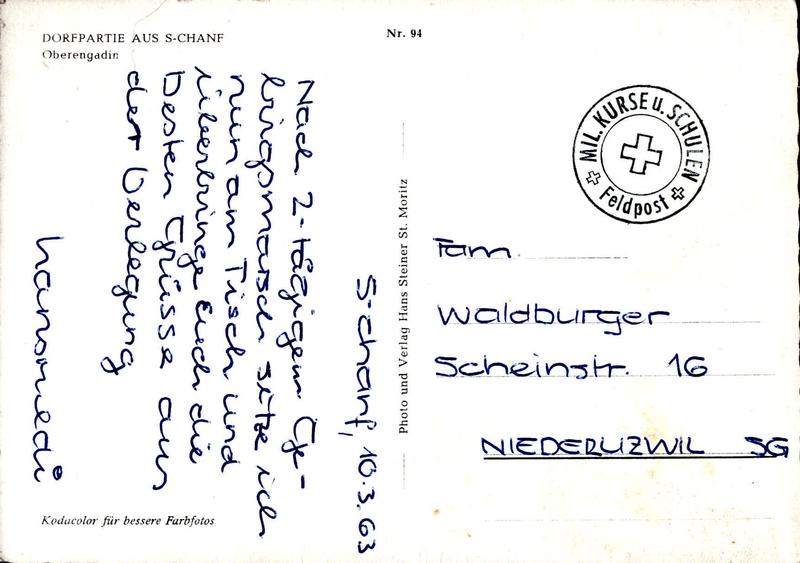 DORFPARTIE AUS S-CHANF
Oberengadin
Nr. 94
S-chanf, 10.3.63
Nach 2-tägigem Ge-
birgsmarsch sitze ich
nun am Tisch und
überbringe Euch die
besten Grüsse aus
der Verlegung
hansruedi
Kodacolor für bessere Farbfotos
Photo und Verlag Hans Steiner St. Moritz
MIL. KURSE u. SCHULEN
Feldpost
Fam.
Waldburger
Scheinstr. 16
NIEDERUZWIL SG